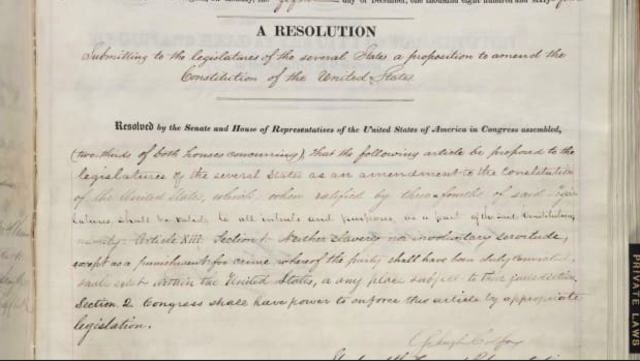 day of December, one thousand eight hundred and sixty-
A RESOLUTION
Submitting to the legislatures of the several States a proposition to amend the
Constitution of the United States
Resolved by the Senate and House of Representatives of the United States of America in Congress assembled,
(two-thirds of both houses concurring), that the following article be proposed to the
legislatures of the several States as an amendment to the Constitution
of the United States, which, when ratified by three-fourths of said Legis-
latures, shall be valid, to all intents and purposes, as a part of the said Constitution,
namely: Article XIII. Section 1. Neither slavery nor involuntary servitude,
except as a punishment for crime whereof the party shall have been duly convicted,
shall exist within the United States, or any place subject to their jurisdiction.
Section 2. Congress shall have power to enforce this article by appropriate
legislation.
Schuyler Colfax
PRIVATE LAWS